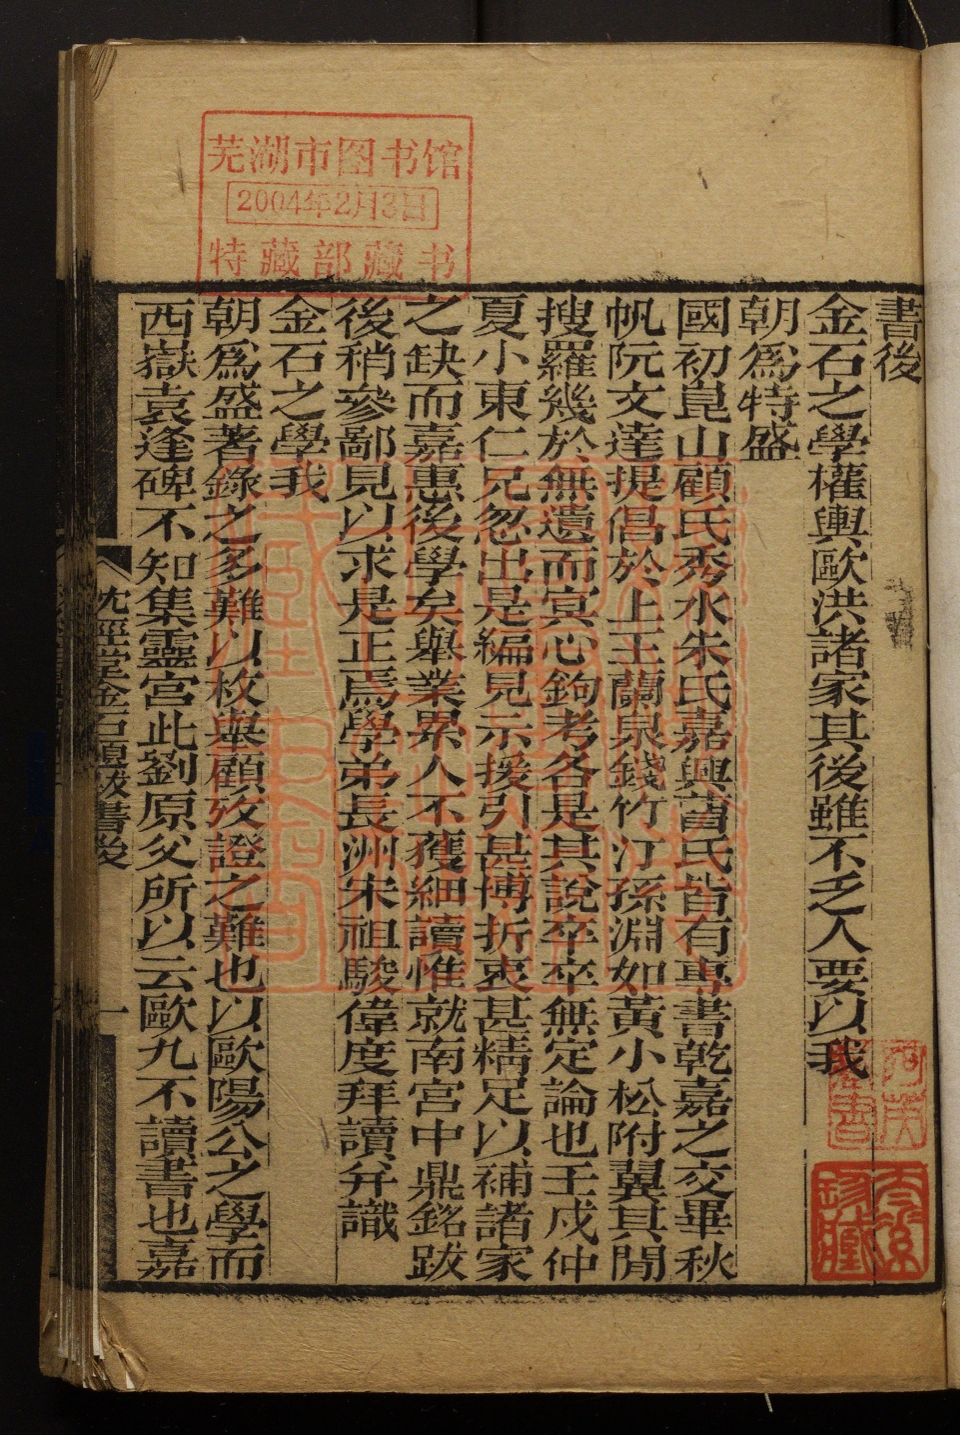 芜湖市图书馆
2004年2月3日
特藏部藏书
書後
金石之學權輿歐洪諸家其後雖不乏人要以我
朝爲特盛
國初崑山顧氏秀水朱氏嘉興曹氏皆有專書乾嘉之交畢秋
帆阮文達提倡於上王蘭泉錢竹汀孫淵如黃小松附翼其閒
搜羅幾於無遺而冥心鉤考各是其說卒卒無定論也壬戌仲
夏小東仁兄忽出是編見示援引甚博折衷甚精足以補諸家
之缺而嘉惠後學矣舉業累人不獲細讀惟就南宮中鼎銘跋
後稍參鄙見以求是正焉學弟長洲宋祖駿偉度拜讀幷識
金石之學我
朝爲盛著錄之多難以枚舉顧攷證之難也以歐陽公之學而
西嶽袁逢碑不知集靈宮此劉原父所以云歐九不讀書也嘉
枕經堂金石題跋書後
一